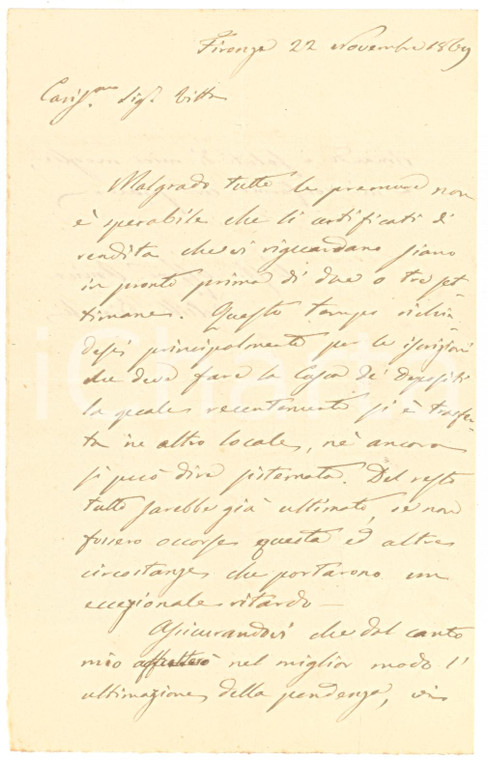 Firenze 22 Novembre 1869
Cariss.mo Sig.r Vitta
Malgrado tutte le premure non
è sperabile che li certificati di
rendita che vi riguardano siano
in pronto prima di due o tre set
timane. Questo tempo richie
desi principalmente per le iscrizioni
che deve fare la Cassa de' Depositi
la quale recentemente si è trasfe
ta in altro locale, nè ancora
si può dire sistemata. Del resto
tutto sarebbe già ultimato, se non
fossero occorse questa ed altre
circostanze che portarono un
eccezionale ritardo —
Assicurandovi che dal canto
mio affretterò nel miglior modo l'
ultimazione della pendenza, vi
iCharta